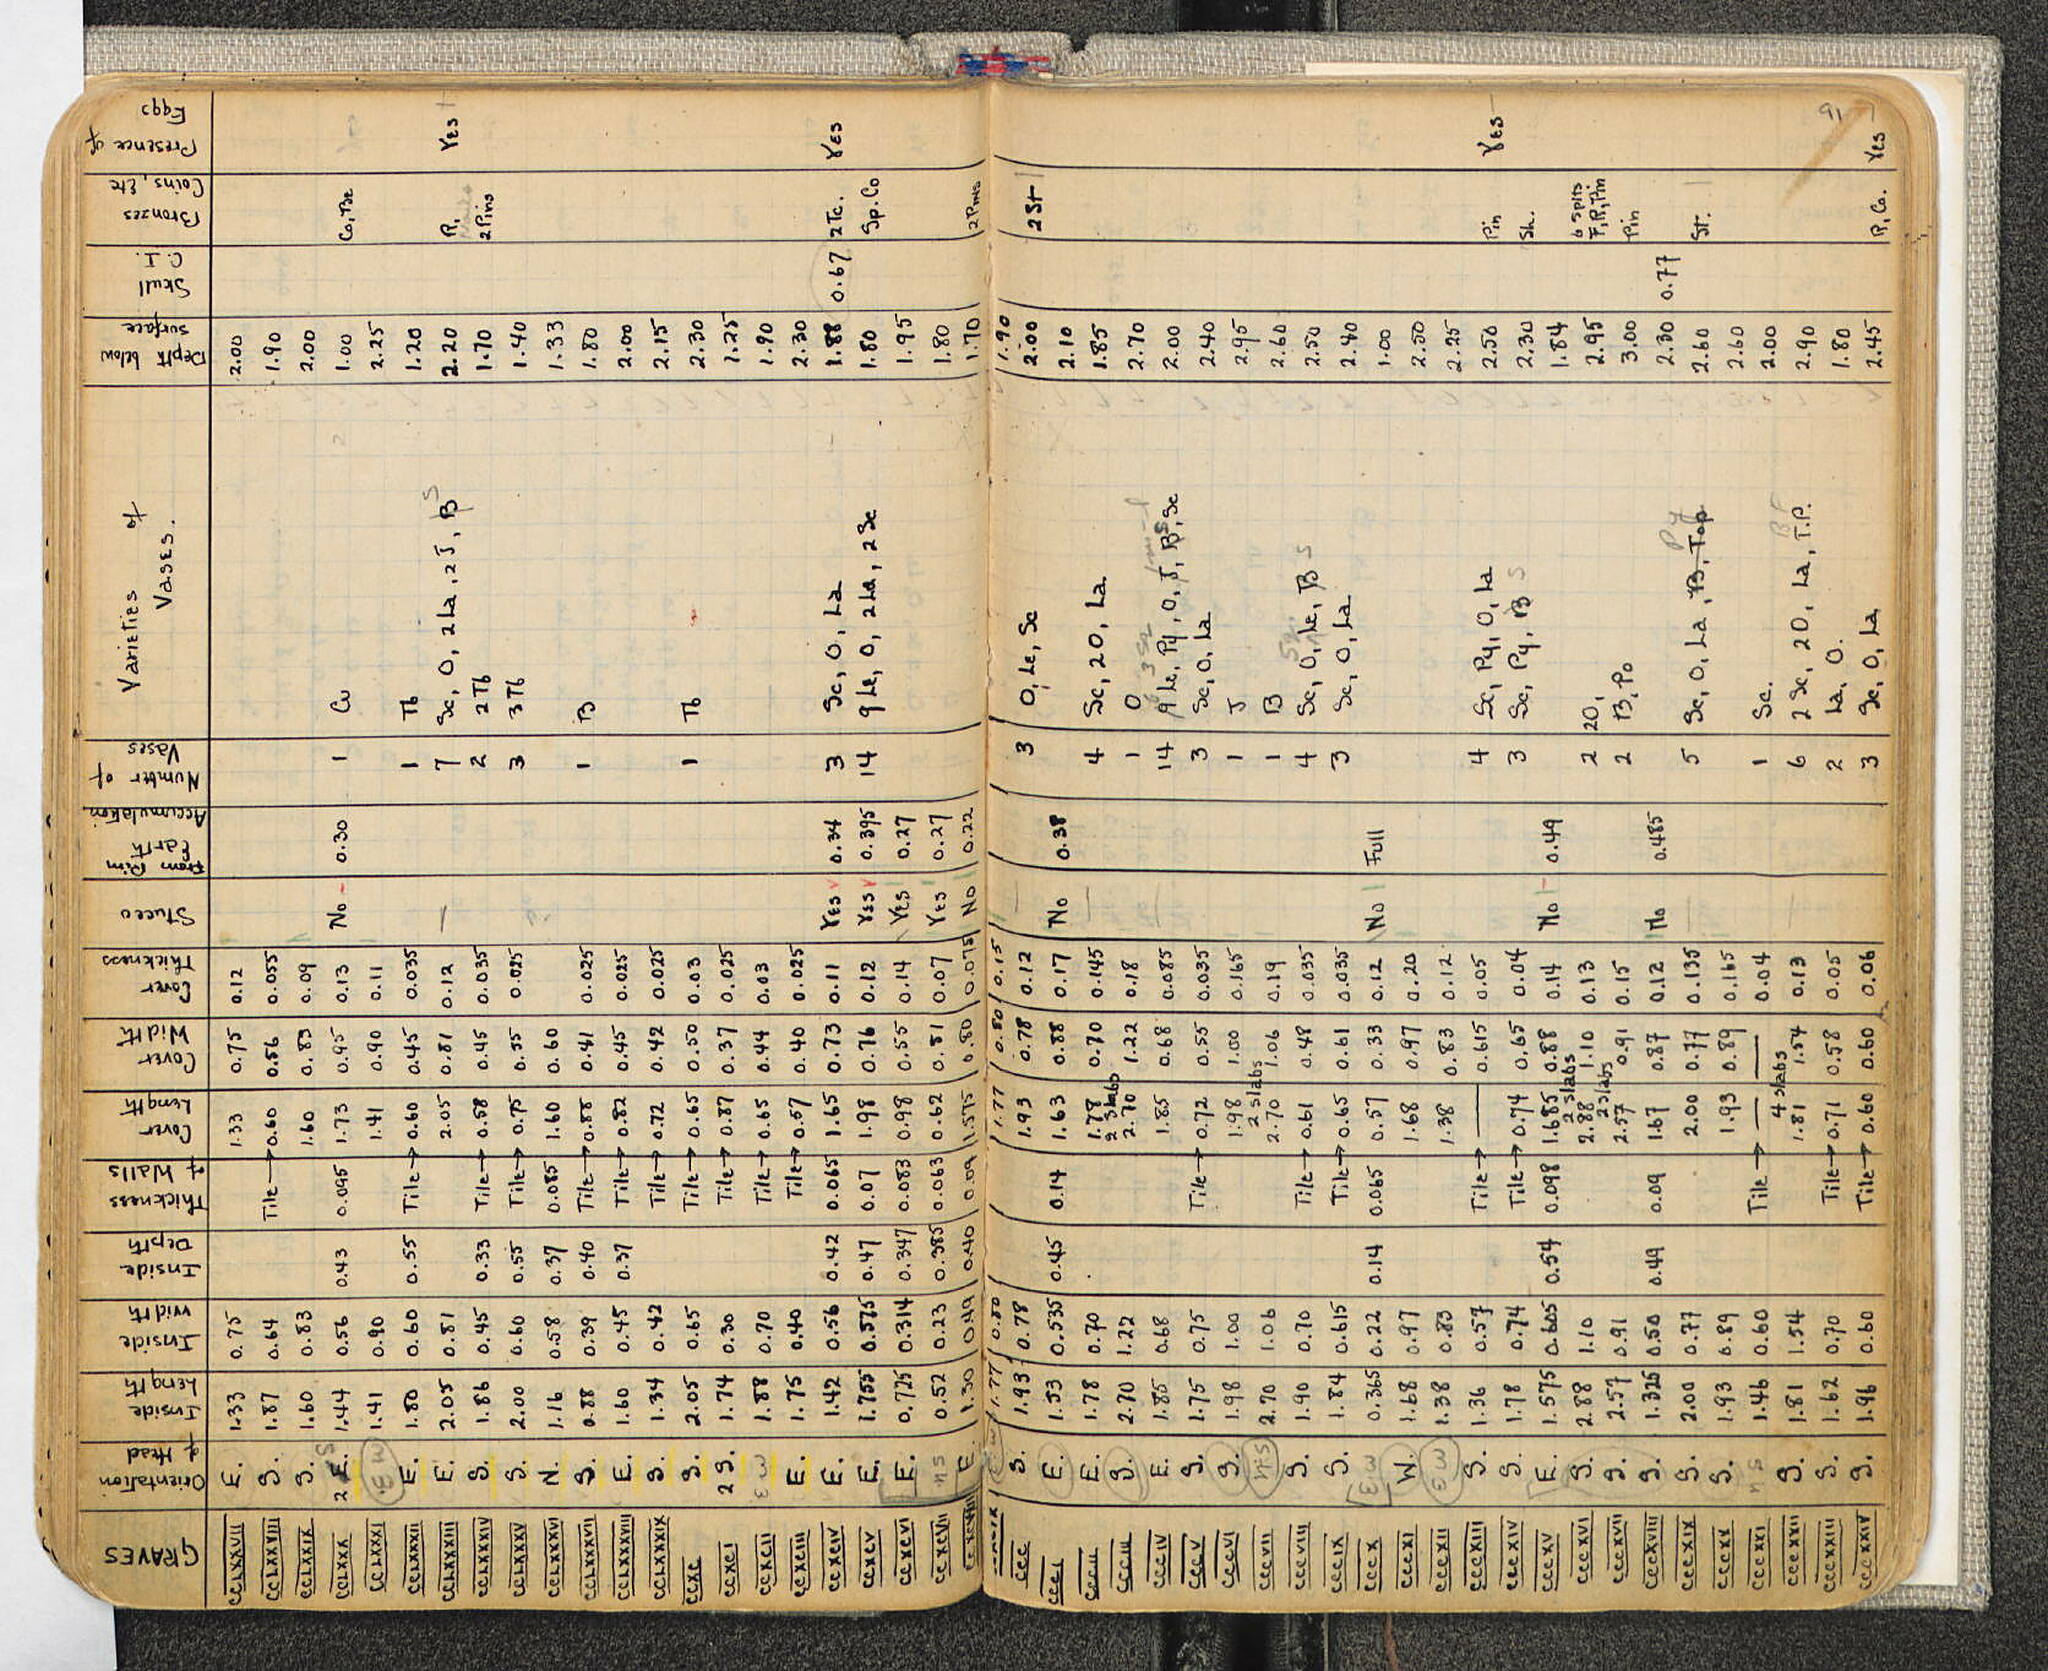 GRAVES | Orientation of Head | Inside Length | Inside Width | Inside Depth | Thickness of Walls | Cover Length | Cover Width | Cover Thickness | Stucco | From Rim Earth Accumulation | Number of Vases | Varieties of Vases. | Depth below surface | Skull C.I. | Bronzes Coins, Etc | Presence of Eggs
CCLXXVII E. 1.33 0.75 1.33 0.75 0.12 2.00
CCLXXVIII S. 1.87 0.64 Tile→ 0.60 0.56 0.055 1.90
CCLXXIX S. 1.60 0.83 1.60 0.83 0.09 2.00
CCLXXX 2 E. S 1.44 0.56 0.43 0.095 1.73 0.95 0.13 No - 0.30 1 Cu 1.00 Co, Bze
CCLXXXI E W 1.41 0.90 1.41 0.90 0.11 2.25
CCLXXXII E. 1.80 0.60 0.55 Tile→ 0.60 0.45 0.035 1 Tb 1.20
CCLXXXIII E. 2.05 0.81 2.05 0.81 0.12 — 7 Sc, O, 2 La, 2 J, B S 2.20 R, Yes
CCLXXXIV S. 1.86 0.45 0.33 Tile→ 0.58 0.45 0.035 2 2 Tb 1.70 2 Pins
CCLXXXV S. 2.00 0.60 0.55 Tile→ 0.75 0.55 0.025 3 3 Tb 1.40
CCLXXXVI N. 1.16 0.58 0.37 0.085 1.60 0.60 1.33
CCLXXXVII S. 0.88 0.39 0.40 Tile→ 0.88 0.41 0.025 1 B 1.80
CCLXXXVIII E. 1.60 0.45 0.37 Tile→ 0.82 0.45 0.025 2.00
CCLXXXIX S. 1.34 0.42 Tile→ 0.72 0.42 0.025 2.15
CCXC S. 2.05 0.65 Tile→ 0.65 0.50 0.03 1 Tb 2.30
CCXCI 2 S. 1.74 0.30 Tile→ 0.87 0.37 0.025 1.25
CCXCII E W 1.88 0.70 Tile→ 0.65 0.44 0.03 1.90
CCXCIII E. 1.75 0.40 Tile→ 0.57 0.40 0.025 2.30
CCXCIV E. 1.42 0.56 0.42 0.065 1.65 0.73 0.11 Yes 0.34 3 Sc, O, La 1.88 0.67 2 Tc. Yes
CCXCV E. 1.755 0.575 0.47 0.07 1.98 0.76 0.12 Yes 0.395 14 9 Le, O, 2 La, 2 Sc 1.80 Sp. Co
CCXCVI E. 0.725 0.314 0.347 0.083 0.98 0.55 0.14 Yes 0.27 1.95
CCXCVII N S 0.52 0.23 0.385 0.063 0.62 0.81 0.07 Yes 0.27 1.80
CCXCVIII E. 1.30 0.49 0.40 0.09 1.575 0.80 0.075 No 0.22 1.70 2 Pins
1.77 0.80 1.77 0.80 0.15 — 1.90
CCC S. 1.93 0.78 1.93 0.78 0.12 3 O, Le, Sc 2.00 2 St
CCCI E. 1.53 0.535 0.45 0.14 1.63 0.88 0.17 No 0.38 2.10
CCCII E. 1.78 0.70 1.78 0.70 0.145 — 4 Sc, 2 O, La 1.85
CCCIII S. 2.70 1.22 2.70 1.22 0.18 1 O 2.70
CCCIV E. 1.85 0.68 1.85 0.68 0.085 — 14 9 Le, Py, O, J, B S, Sc 2.00
CCCV S. 1.75 0.75 Tile→ 0.72 0.55 0.035 3 Sc, O, La 2.40
CCCVI S. 1.98 1.00 1.98 1.00 0.165 1 J 2.95
CCCVII N-S 2.70 1.06 2 slabs 2.70 1.06 0.19 1 B 2.60
CCCVIII S. 1.90 0.70 Tile→ 0.61 0.48 0.035 4 Sc, O, Le, B S 2.50
CCCIX S. 1.84 0.615 Tile→ 0.65 0.61 0.035 3 Sc, O, La 2.40
CCCX E W 0.365 0.22 0.14 0.065 0.57 0.33 0.12 No Full 1.00
CCCXI W. 1.68 0.97 1.68 0.97 0.20 2.50
CCCXII E W 1.38 0.83 1.38 0.83 0.12 2.25
CCCXIII S. 1.36 0.57 Tile→ — 0.615 0.05 4 Sc, Py, O, La 2.50 Pin Yes
CCCXIV S. 1.78 0.74 Tile→ 0.74 0.65 0.04 3 Sc, Py, B S 2.30 Sh.
CCCXV E. 1.575 0.605 0.54 0.098 1.685 0.88 0.14 No - 0.49 1.84
CCCXVI S. 2.88 1.10 2 slabs 2.88 1.10 0.13 2 2 O, 2.95 6 Spits F, R, Pin
CCCXVII S. 2.57 0.91 2 slabs 2.57 0.91 0.15 2 B, Po 3.00 Pin
CCCXVIII S. 1.325 0.50 0.49 0.09 1.67 0.87 0.12 No 0.485 2.30 0.77
CCCXIX S. 2.00 0.77 2.00 0.77 0.135 — 5 Sc, O, La, B, Top Py 2.60 St.
CCCXX S. 1.93 0.89 1.93 0.89 0.165 2.60
CCCXXI N S 1.46 0.60 Tile→ — — 0.04 1 Sc. 2.00
CCCXXII S. 1.81 1.54 4 slabs 1.81 1.54 0.13 — 6 2 Sc, 2 O, La, T.P. 2.90
CCCXXIII S. 1.62 0.70 Tile→ 0.71 0.58 0.05 2 La, O. 1.80
CCCXXIV S. 1.96 0.60 Tile→ 0.60 0.60 0.06 3 Sc, O, La 2.45 R, Co. Yes
91